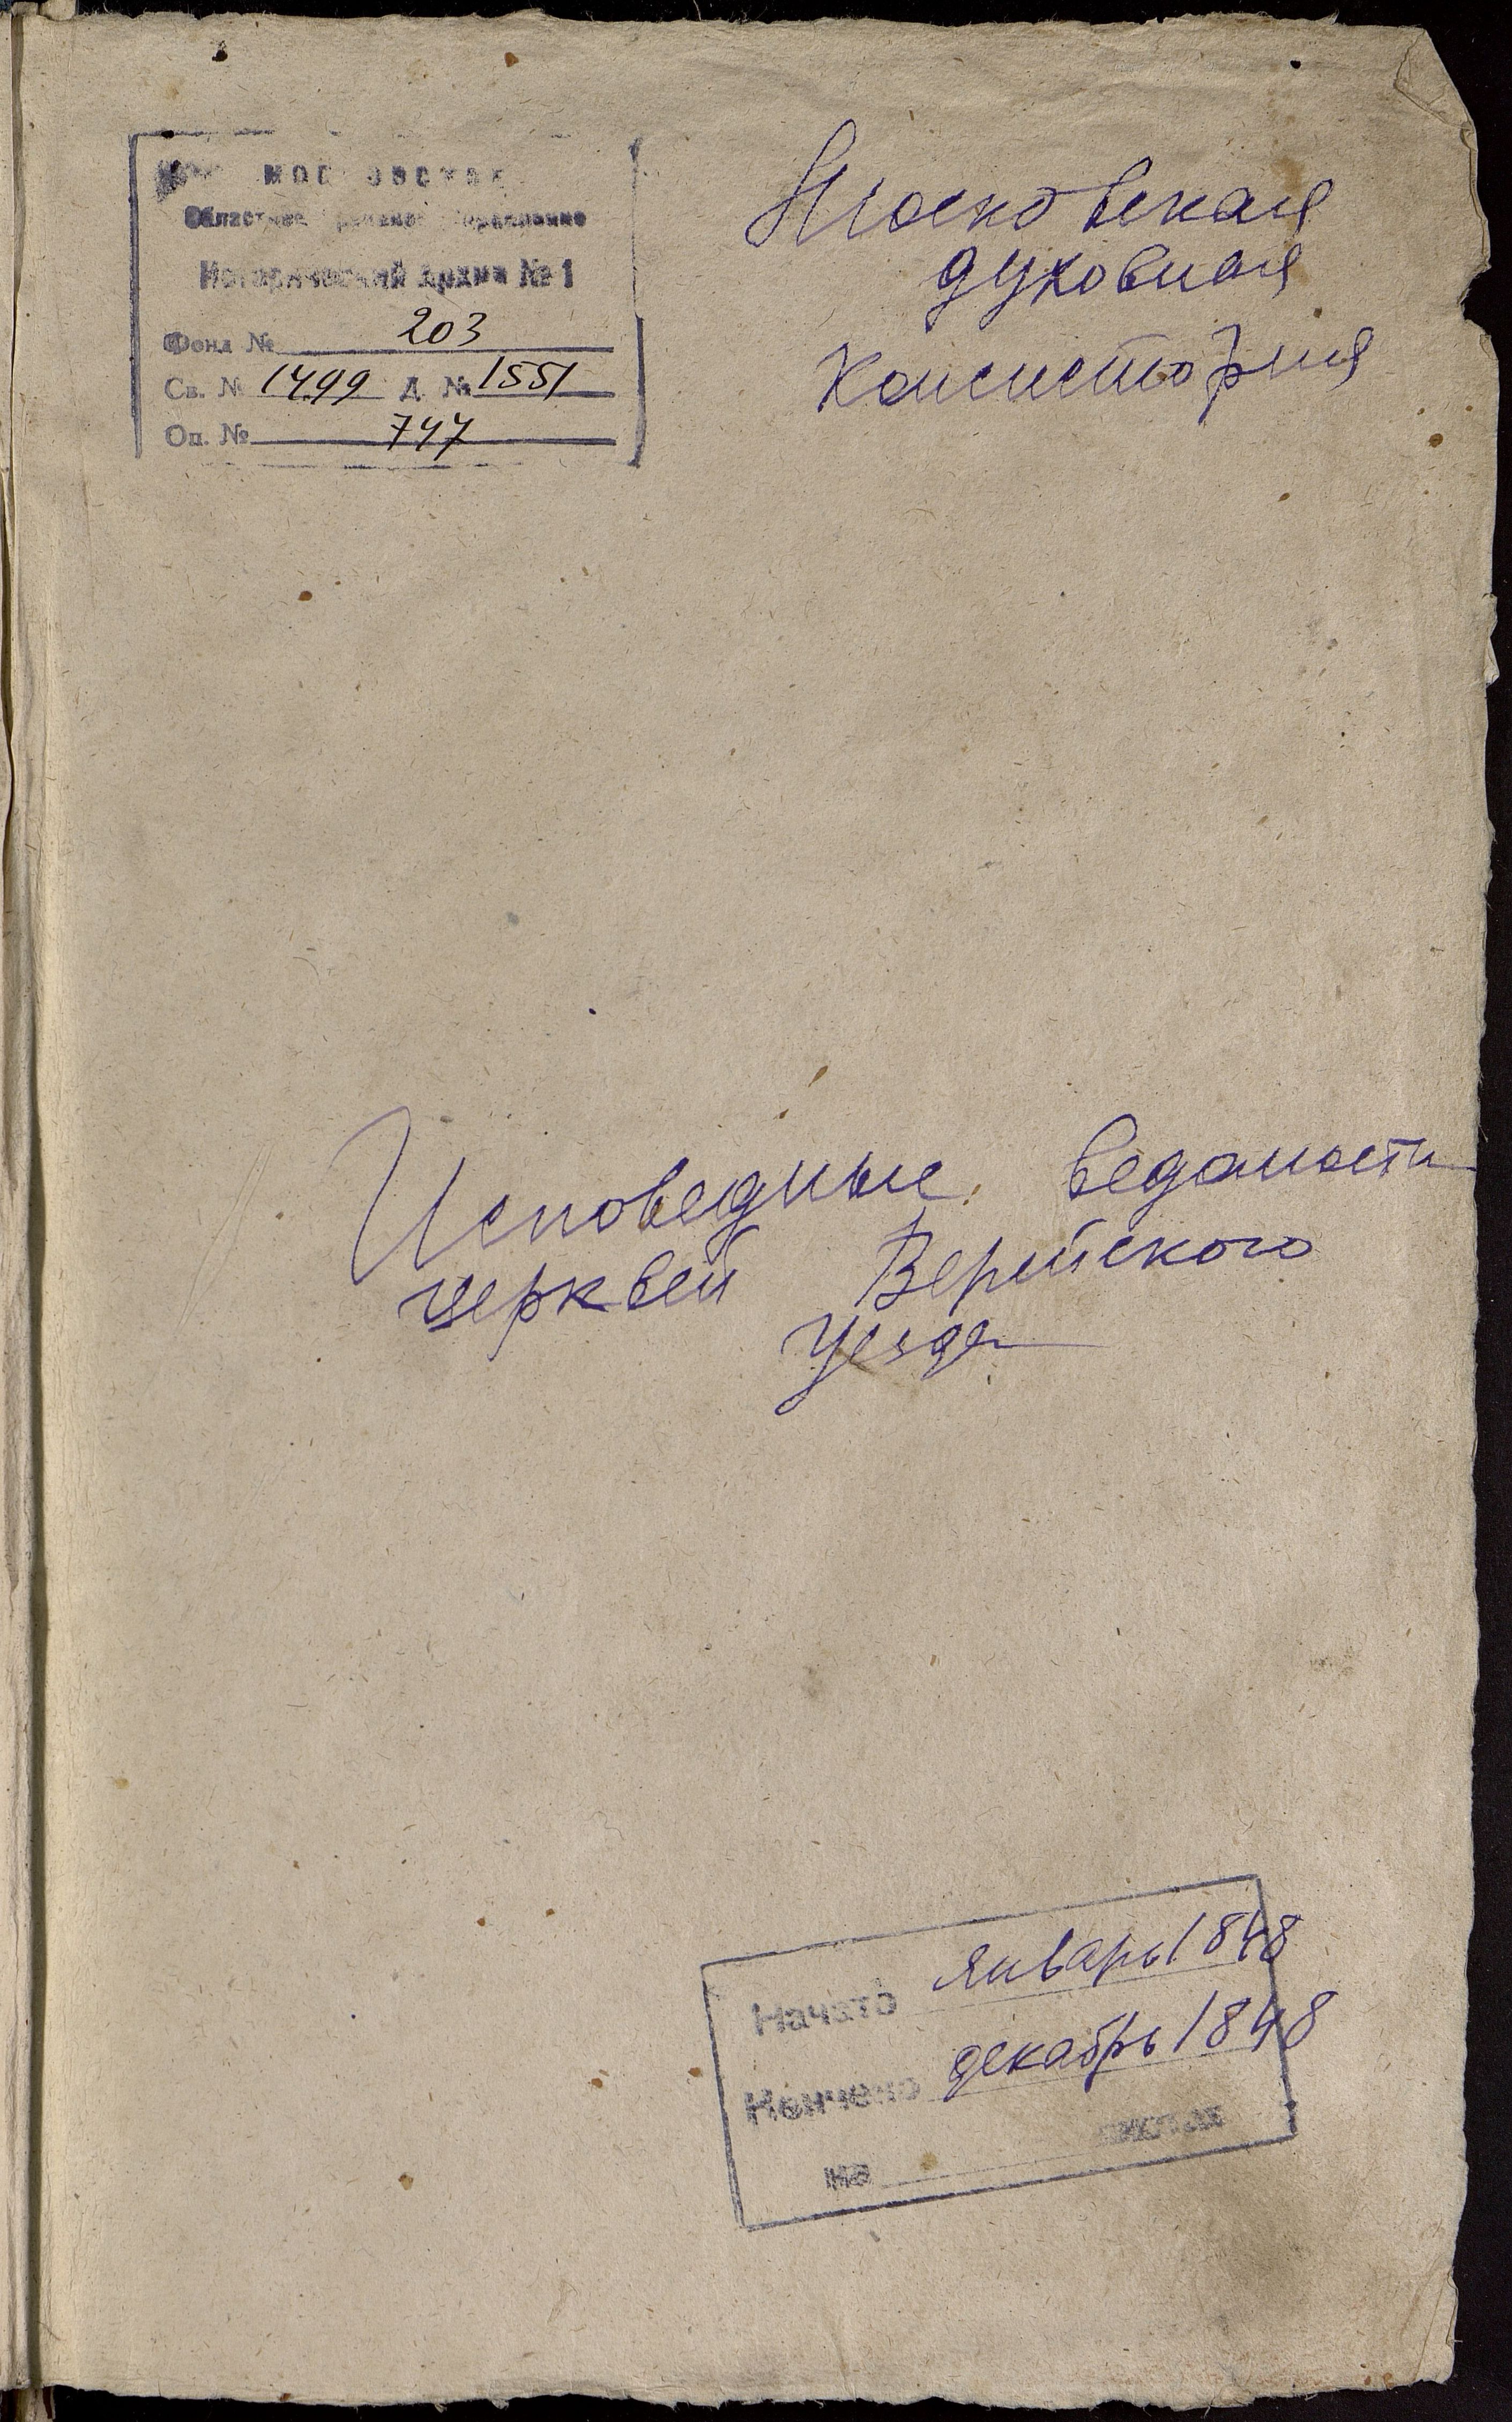 Московская
Областное Архивное Управление
Исторический Архив № 1
Фонд № 203
Св. № 1499 Д. № 1551
Оп. № 747
Московская
духовная
консистория
Исповедные ведомости
церквей Верейского
уезда
Начато январь 1848
Кончено декабрь 1848
на листах